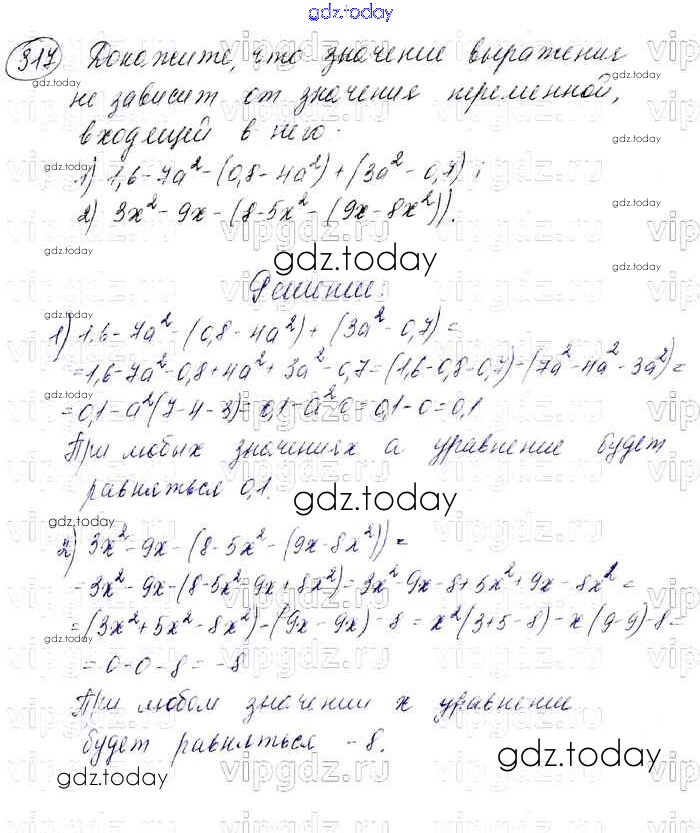 gdz.today
317 Докажите, что значение выражения
не зависит от значения переменной,
входящей в него.
1) 1,6-7a²-(0,8-4a²)+(3a²-0,7);
2) 3x²-9x-(8-5x²-(9x-8x²)).
gdz.today
Решение.
1) 1,6-7a²-(0,8-4a²)+(3a²-0,7)=
=1,6-7a²-0,8+4a²+3a²-0,7=(1,6-0,8-0,7)-(7a²-4a²-3a²)=
=0,1-a²(7-4-3)=0,1-a²·0=0,1-0=0,1
При любых значениях a уравнение будет
равняться 0,1.
gdz.today
2) 3x²-9x-(8-5x²-(9x-8x²))=
=3x²-9x-(8-5x²-9x+8x²)=3x²-9x-8+5x²+9x-8x²=
=(3x²+5x²-8x²)-(9x-9x)-8=x²(3+5-8)-x(9-9)-8=
=0-0-8=-8
При любом значении x уравнение
будет равняться -8.
gdz.today